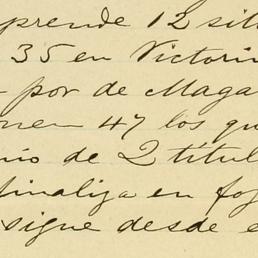 prende 12 sill
35 en Victorin
por de Maga
nen 47 los qu
nio de 2 titul
finaliza en foj
sigue desde e